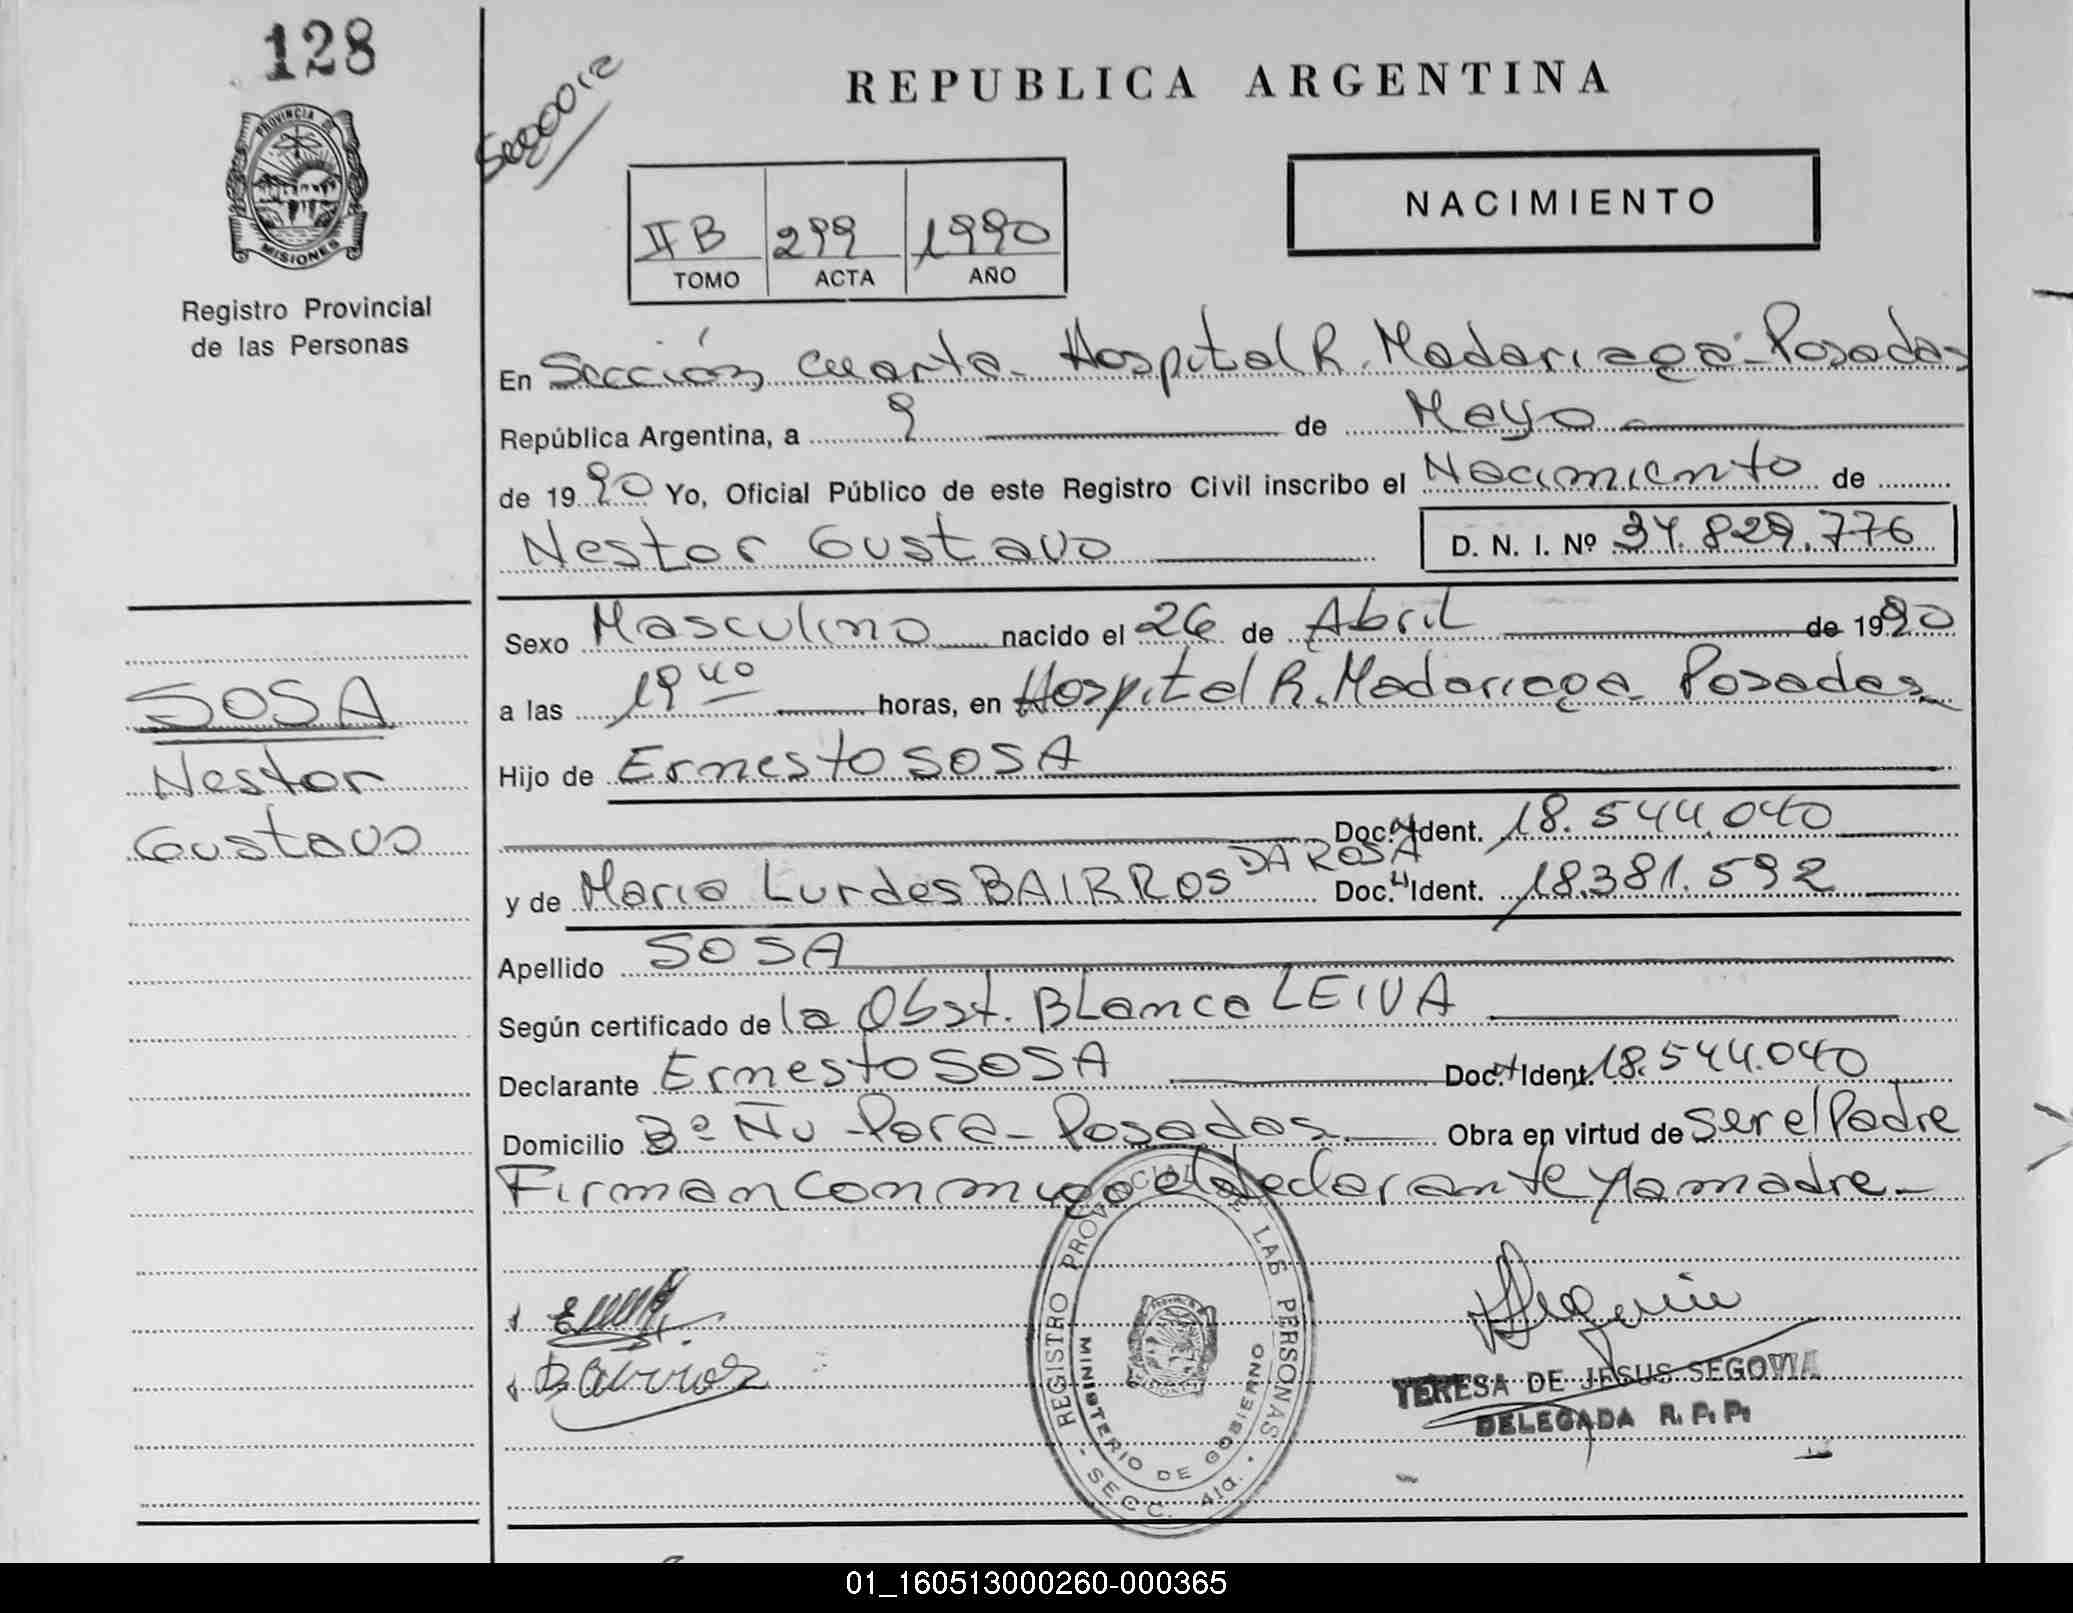 128
PROVINCIA DE
MISIONES
Registro Provincial
de las Personas
Segovia
REPUBLICA ARGENTINA
NACIMIENTO
II B 299 1990
TOMO ACTA AÑO
En Sección cuarta - Hospital R. Madariaga - Posadas
República Argentina, a 9 de Mayo
de 1990 Yo, Oficial Público de este Registro Civil inscribo el Nacimiento de
Nestor Gustavo D. N. I. Nº 34.829.776
Sexo Masculino nacido el 26 de Abril de 1990
a las 19 40 horas, en Hospital R. Madariaga Posadas
Hijo de Ernesto SOSA
Doc. Ident. 18.544.040
y de Maria Lurdes BAIRROS DA ROSA Doc. Ident. 18.381.592
Apellido SOSA
Según certificado de la Obst. Blanca LEIVA
Declarante Ernesto SOSA Doc. Ident. 18.544.040
Domicilio Bº Ñu - Pora - Posadas Obra en virtud de ser el Padre
Firman conmigo el declarante y la madre -
SOSA
Nestor
Gustavo
REGISTRO PROVINCIAL DE LAS PERSONAS
MINISTERIO DE GOBIERNO
- SECC. 4ta. -
TERESA DE JESUS SEGOVIA
DELEGADA R. P. P.
01_160513000260-000365